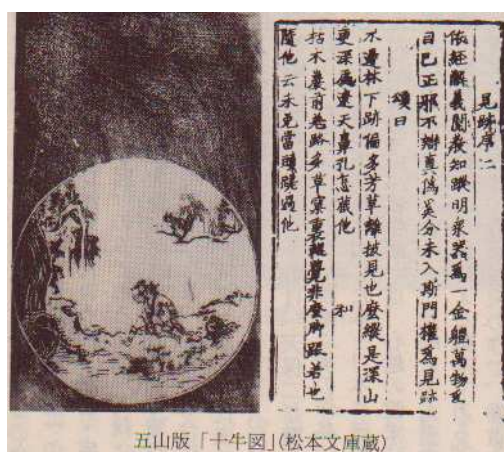 見跡序二
依經解義閱教知蹤明衆器為一金軆萬物為
自己正邪不辯真偽奚分未入斯門權為見跡
頌曰
水邊林下跡偏多芳草離披見也麼縱是深山
更深處遼天鼻孔怎藏他 和
枯木巖前差路多草窠裏輥覺非麼脚跟若也
隨他去未免當頭蹉過他
五山版「十牛図」(松本文庫蔵)